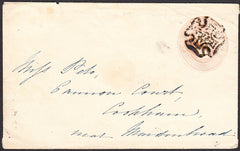 Miss Peto,
Cannon Court,
Cookham,
near Maidenhead